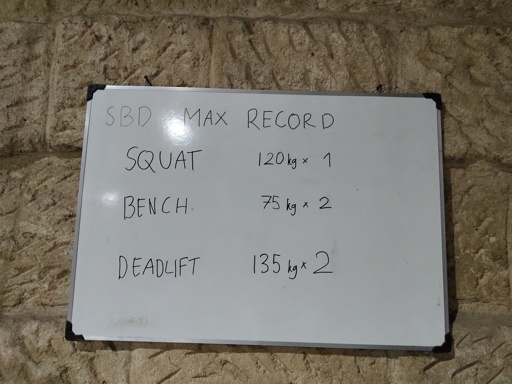 SBD MAX RECORD
SQUAT 120 kg × 1
BENCH. 75 kg × 2
DEADLIFT 135 kg × 2